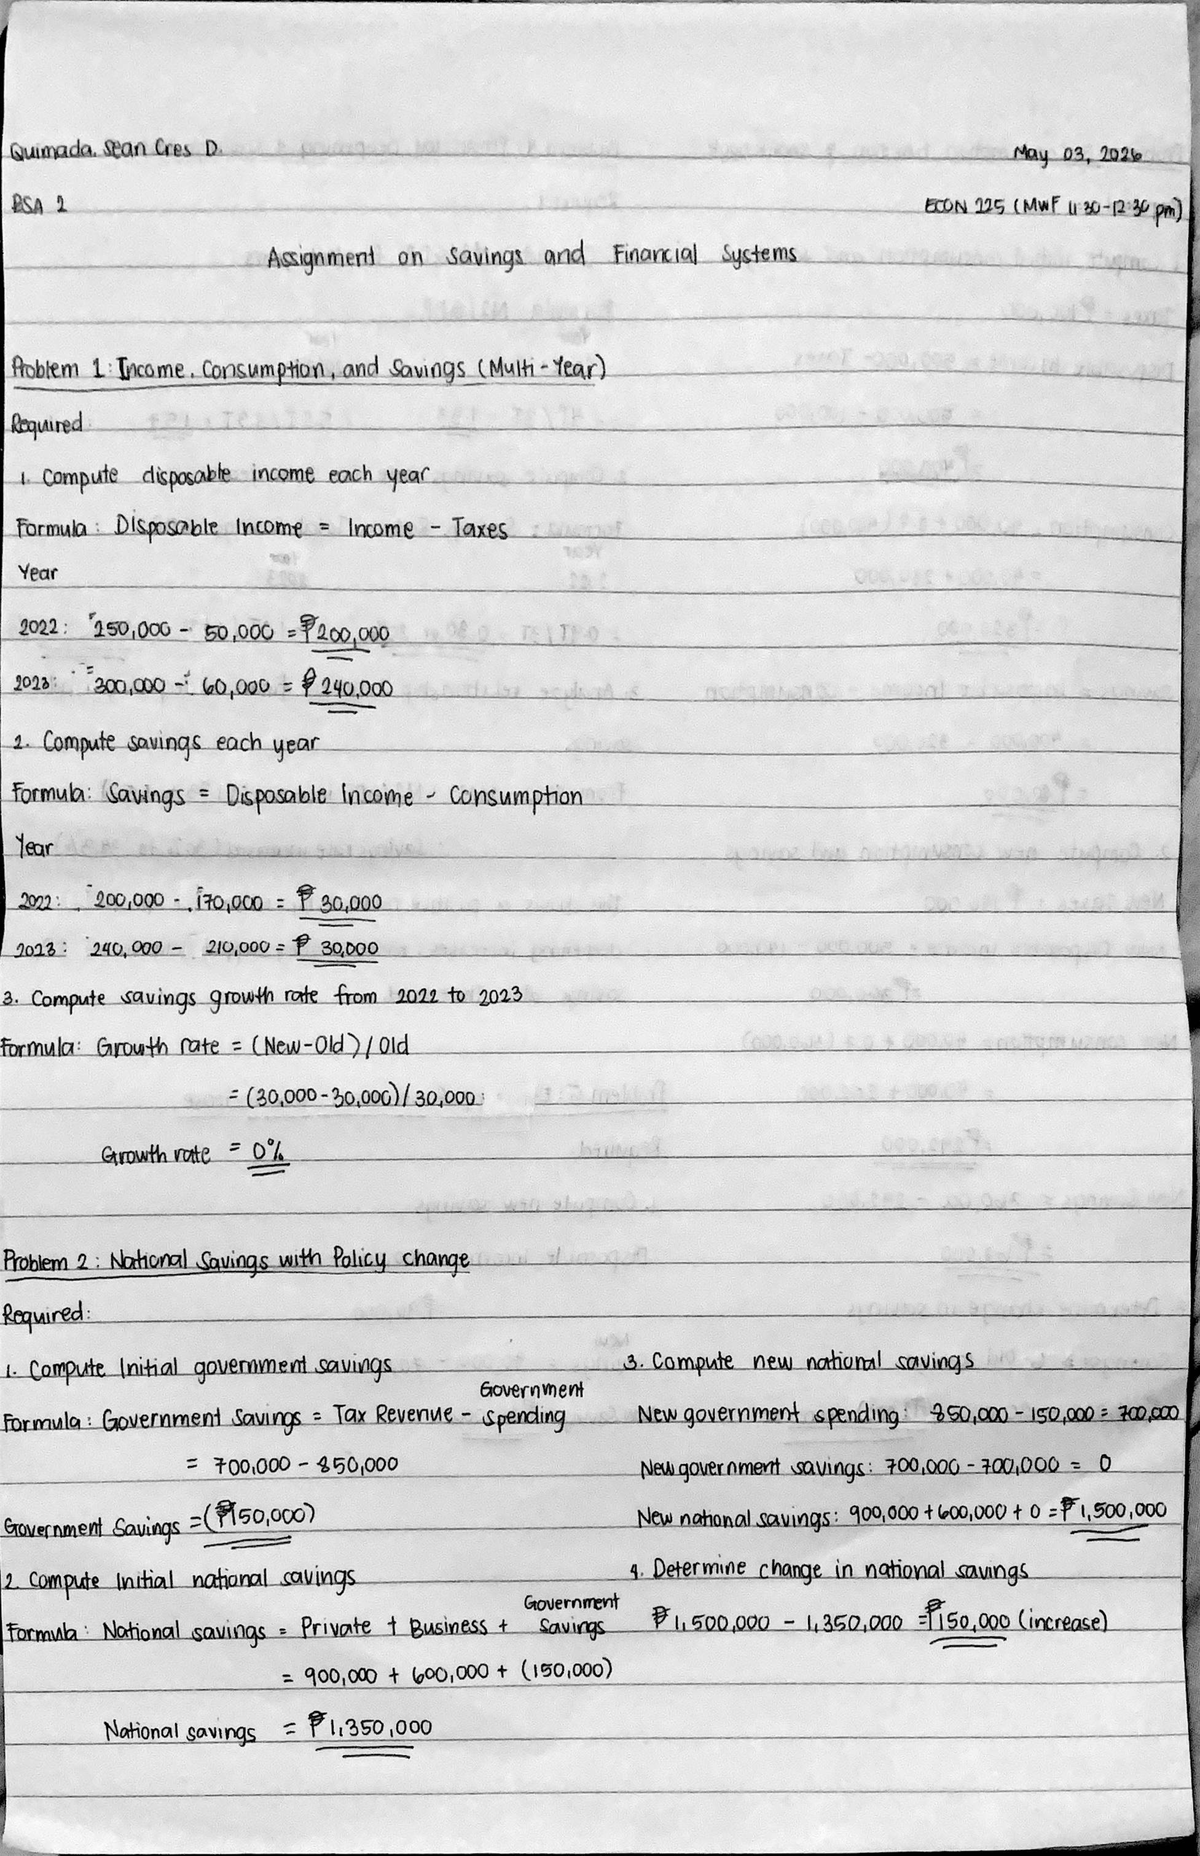 Quimada, Sean Cres D.
May 03, 2026
BSA 2
ECON 225 (MWF 11:30-12:30 pm)
Assignment on Savings and Financial Systems
Problem 1: Income, Consumption, and Savings (Multi-Year)
Required
1. Compute disposable income each year
Formula: Disposable Income = Income - Taxes
Year
2022: 250,000 - 50,000 = ₱200,000
2023: 300,000 - 60,000 = ₱240,000
2. Compute savings each year
Formula: Savings = Disposable Income - Consumption
Year
2022: 200,000 - 170,000 = ₱ 30,000
2023: 240,000 - 210,000 = ₱ 30,000
3. Compute savings growth rate from 2022 to 2023
Formula: Growth rate = (New-Old)/Old
= (30,000-30,000)/30,000
Growth rate = 0%
Problem 2: National Savings with Policy change
Required:
1. Compute Initial government savings
Formula: Government Savings = Tax Revenue - Government Spending
= 700,000 - 850,000
Government Savings = (₱150,000)
2. Compute Initial national savings
Formula: National savings = Private + Business + Government Savings
= 900,000 + 600,000 + (150,000)
National savings = ₱1,350,000
3. Compute new national savings
New government spending: 850,000 - 150,000 = 700,000
New government savings: 700,000 - 700,000 = 0
New national savings: 900,000 + 600,000 + 0 = ₱1,500,000
4. Determine change in national savings
₱1,500,000 - 1,350,000 = ₱150,000 (increase)